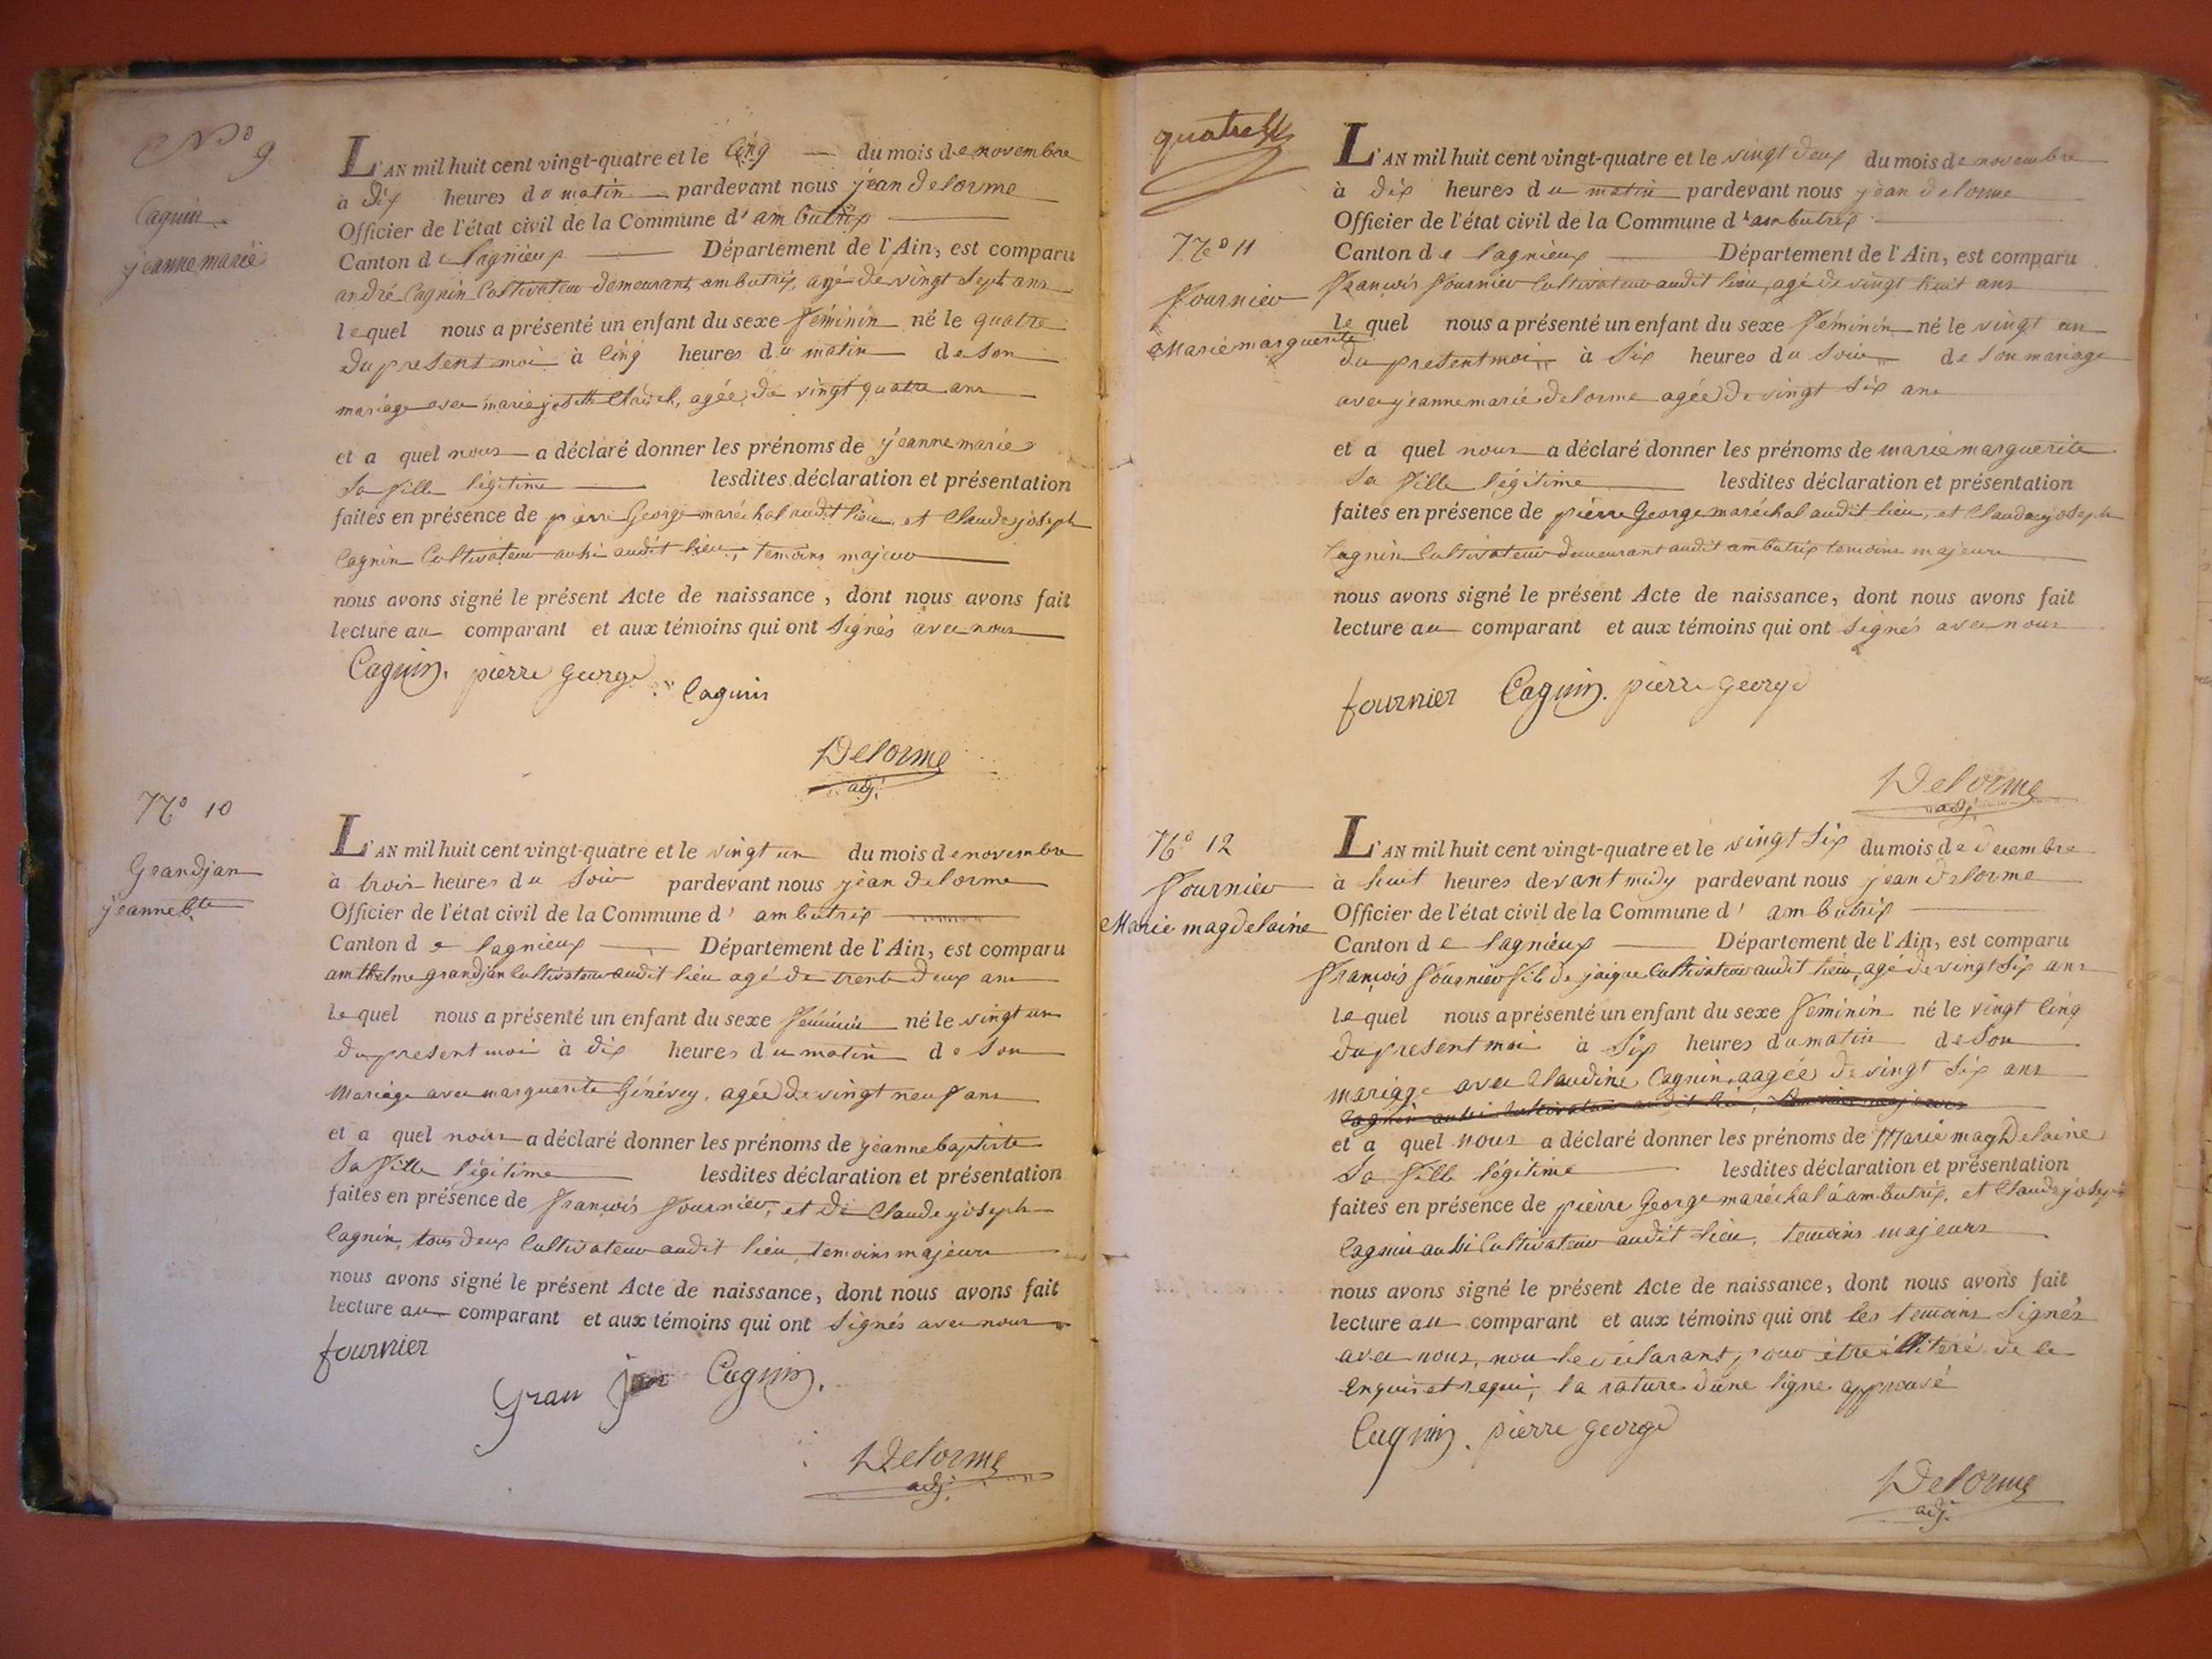 N° 9
Cagnin
jeanne marie
L'AN mil huit cent vingt-quatre et le cinq du mois de novembre
à dix heures du matin pardevant nous jean delorme
Officier de l'état civil de la Commune d'ambutrix
Canton de lagnieux Département de l'Ain, est comparu
andré Cagnin Cultivateur demeurant ambutrix, agé de vingt Sept ans
lequel nous a présenté un enfant du sexe féminin né le quatre
du present moi à cinq heures du matin de son
mariage avec marie josette, agée de vingt quatre ans
et a quel nous a déclaré donner les prénoms de jeanne marie
Sa fille légitime lesdites déclaration et présentation
faites en présence de pierre George maréchal audit lieu, et Claude joseph
Cagnin Cultivateur aussi audit lieu, temoins majeur
nous avons signé le présent Acte de naissance, dont nous avons fait
lecture au comparant et aux témoins qui ont Signés avec nous
Cagnin. pierre george Cagnin
Delorme
adj.
N° 10
Grandjan
jeanne bte
L'AN mil huit cent vingt-quatre et le vingt un du mois de novembre
à trois heures du Soir pardevant nous jean delorme
Officier de l'état civil de la Commune d'ambutrix
Canton de lagnieux Département de l'Ain, est comparu
amthelme grandjan Cultivateur audit lieu agé de trente deux ans
lequel nous a présenté un enfant du sexe féminin né le vingt un
du present moi à dix heures du matin de Son
Mariage avec marguerite Génévey, agée de vingt neuf ans
et a quel nous a déclaré donner les prénoms de jeanne baptiste
Sa fille légitime lesdites déclaration et présentation
faites en présence de françois fournier, et de Claude joseph
Cagnin, tous deux Cultivateur audit lieu, temoins majeurs
nous avons signé le présent Acte de naissance, dont nous avons fait
lecture au comparant et aux témoins qui ont Signés avec nous
fournier
Gran jan Cagnin.
Delorme
adj.
quatre
N° 11
fournier
Marie marguerite
L'AN mil huit cent vingt-quatre et le vingt deux du mois de novembre
à dix heures du matin pardevant nous jean delorme
Officier de l'état civil de la Commune d'ambutrix
Canton de lagnieux Département de l'Ain, est comparu
françois fournier Cultivateur audit lieu, agé de vingt huit ans
lequel nous a présenté un enfant du sexe féminin né le vingt un
du present moi à Six heures du Soir de Son mariage
avec jeanne marie delorme agée de vingt Six ans
et a quel nous a déclaré donner les prénoms de marie marguerite
Sa fille légitime lesdites déclaration et présentation
faites en présence de pierre George maréchal audit lieu, et Claude joseph
Cagnin Cultivateur demeurant audit ambutrix temoins majeurs
nous avons signé le présent Acte de naissance, dont nous avons fait
lecture au comparant et aux témoins qui ont Signés avec nous
fournier Cagnin. pierre george
Delorme
adj.
N° 12
fournier
Marie magdelaine
L'AN mil huit cent vingt-quatre et le vingt Six du mois de decembre
à huit heures devant midy pardevant nous jean delorme
Officier de l'état civil de la Commune d'ambutrix
Canton de lagnieux Département de l'Ain, est comparu
françois fournier fils de jaique Cultivateur audit lieu, agé de vingt Six ans
lequel nous a présenté un enfant du sexe féminin né le vingt cinq
du present moi à Six heures du matin de Son
mariage avec Claudine Cagnin, aagée de vingt Six ans
et a quel nous a déclaré donner les prénoms de Marie magdelaine
Sa fille légitime lesdites déclaration et présentation
faites en présence de pierre George maréchal à ambutrix, et Claude joseph
Cagnin aussi Cultivateur audit lieu, temoins majeurs
nous avons signé le présent Acte de naissance, dont nous avons fait
lecture au comparant et aux témoins qui ont les temoins Signés
avec nous, non le déclarant, pour être illiteré de ce
enquis et requi, la rature d'une ligne approuvé
Cagnin. pierre george
Delorme
adj.